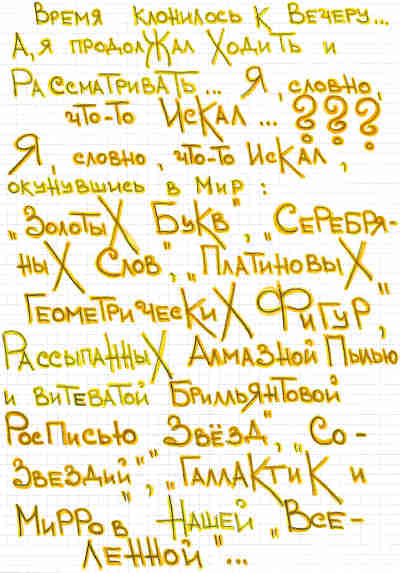 Время клонилось к Вечеру...
А, я продолЖал Ходить и
Рассматривать... Я, словно,
что-то Искал ... ???
Я, словно, что-то Искал,
окунувшись в Мир:
„Золотых Букв", „Серебря-
ных Слов", „Платиновых,
Геометрических Фигур",
Рассыпанных Алмазной Пылью
и витеватой Брильянтовой
Росписью Звёзд", „Со-
Звездий"", „Галлактик и
Мирров" Нашей „Все-
ленной"...